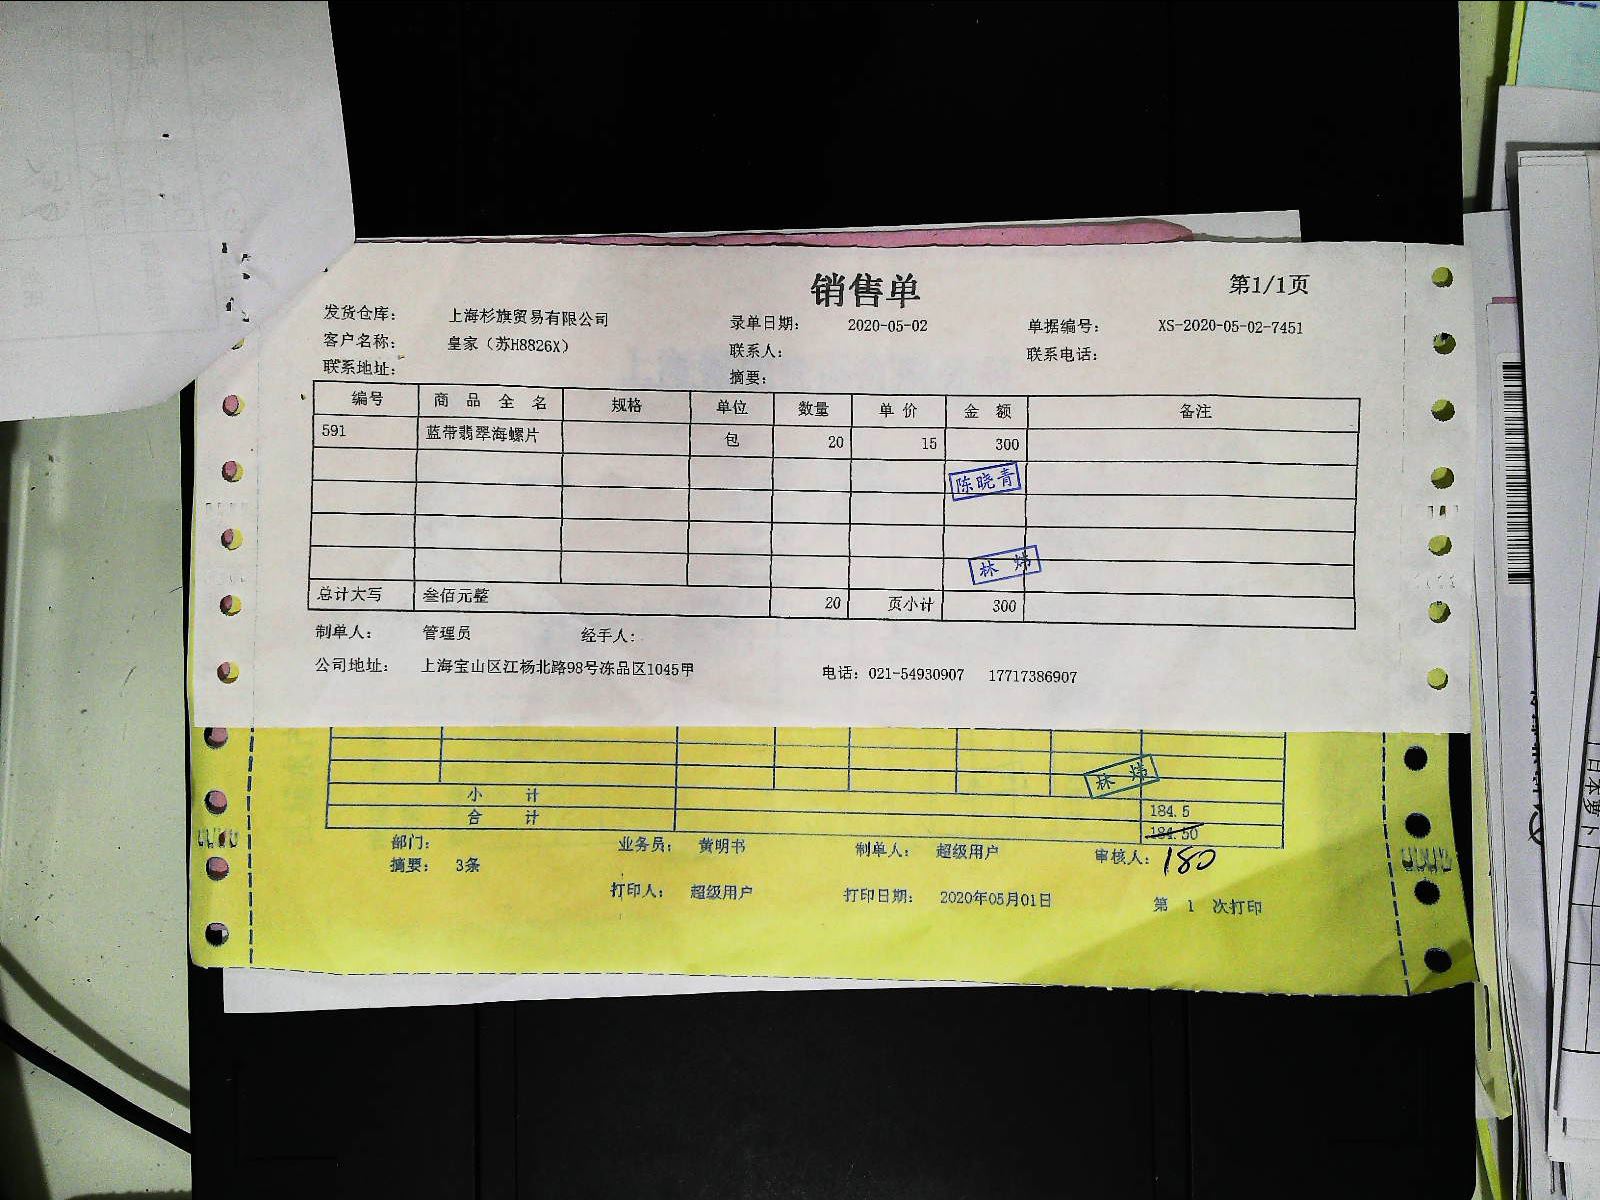 销售单
第1/1页
发货仓库： 上海杉旗贸易有限公司 录单日期： 2020-05-02 单据编号： XS-2020-05-02-7451
客户名称： 皇家（苏H8826X） 联系人： 联系电话：
联系地址： 摘要：
编号 商品全名 规格 单位 数量 单价 金额 备注
591 蓝带翡翠海螺片 包 20 15 300
陈晓青
林炜
总计大写 叁佰元整 20 页小计 300
制单人： 管理员 经手人：
公司地址： 上海宝山区江杨北路98号冻品区1045甲 电话：021-54930907 17717386907
林炜
小计 184.5
合计 184.50
180
部门： 业务员： 黄明书 制单人： 超级用户 审核人：
摘要： 3条
打印人： 超级用户 打印日期： 2020年05月01日 第 1 次打印
日本萝卜